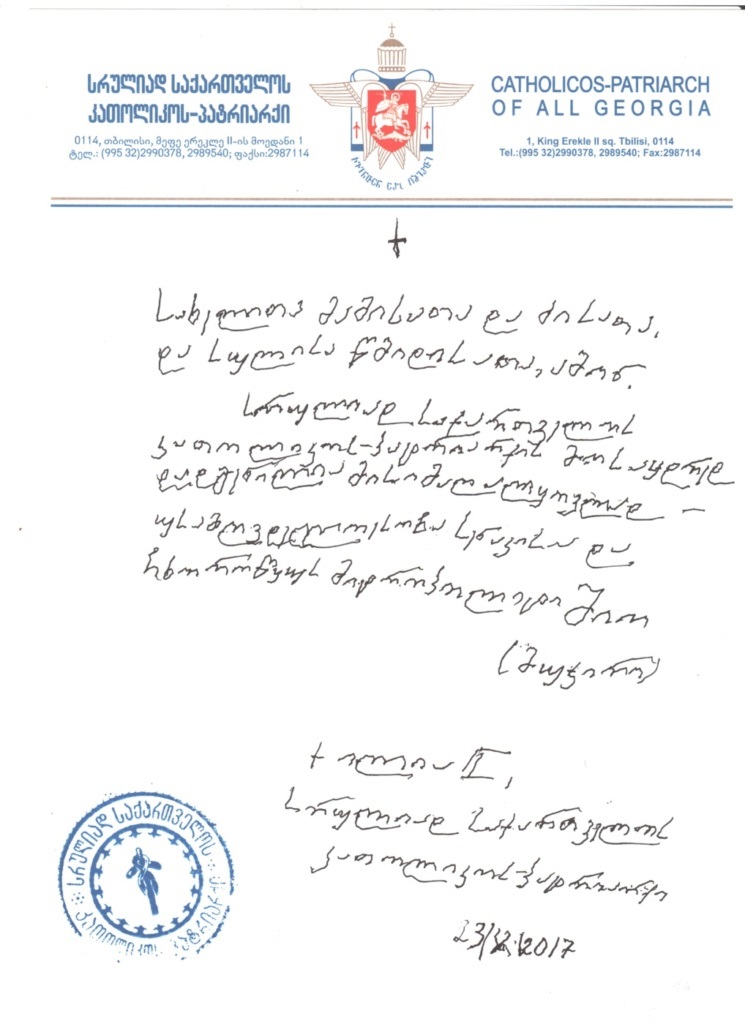 სრულიად საქართველოს
კათოლიკოს-პატრიარქი
0114, თბილისი, მეფე ერეკლე II-ის მოედანი 1
ტელ.: (995 32)2990378, 2989540; ფაქსი:2987114
CATHOLICOS-PATRIARCH
OF ALL GEORGIA
1, King Erekle II sq. Tbilisi, 0114
Tel.:(995 32)2990378, 2989540; Fax:2987114
სახელითა მამისათა და ძისათა,
და სულისა წმიდისათა, ამონ.
სრულიად საქართველოს
კათოლიკოს-პატრიარქის მოსაყდრედ
დადგენილია მისი მაღალყოვლად-
უსამღვდელოესობა სენაკისა და
ჩხოროწყუს მიტროპოლიტი შიო
(მუჯირი)
† ილია II,
სრულიად საქართველოს
კათოლიკოს-პატრიარქი
23/X.2017
სრულიად საქართველოს
კათოლიკოს-პატრიარქი